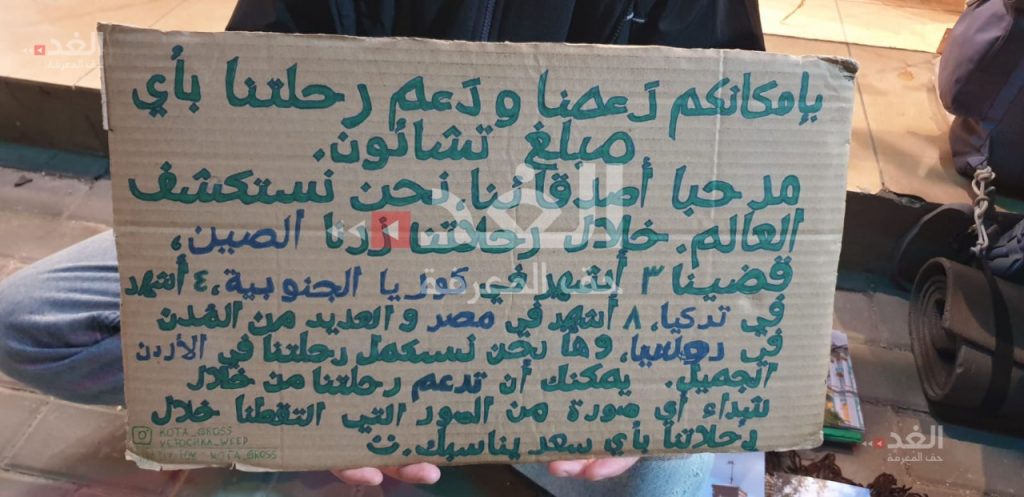 بإمكانكم دَعمنا و دَعم رحلتنا بأي
مبلغ تشائون.
مرحبا أصدقائنا نحن نستكشف
العالم. خلال رحلاتنا زُرنا الصين،
قضينا ٣ أشهر في كوريا الجنوبية، ٤ أشهر
في تركيا، ٨ أشهر في مصر و العديد من المُدن
في روسيا، وها نحن نستكمل رحلتنا في الأردن
الجميل. يمكنك أن تدعم رحلتنا من خلال
شراء أي صورة من الصور التي التقطنا خلال
رحلاتنا بأي سعر يناسبك.
KOTA_GROSS
VETOCHKA_WEED
KOTA_GROSS
الغد
حق المعرفة
الغد
حق المعرفة
الغد
حق المعرفة